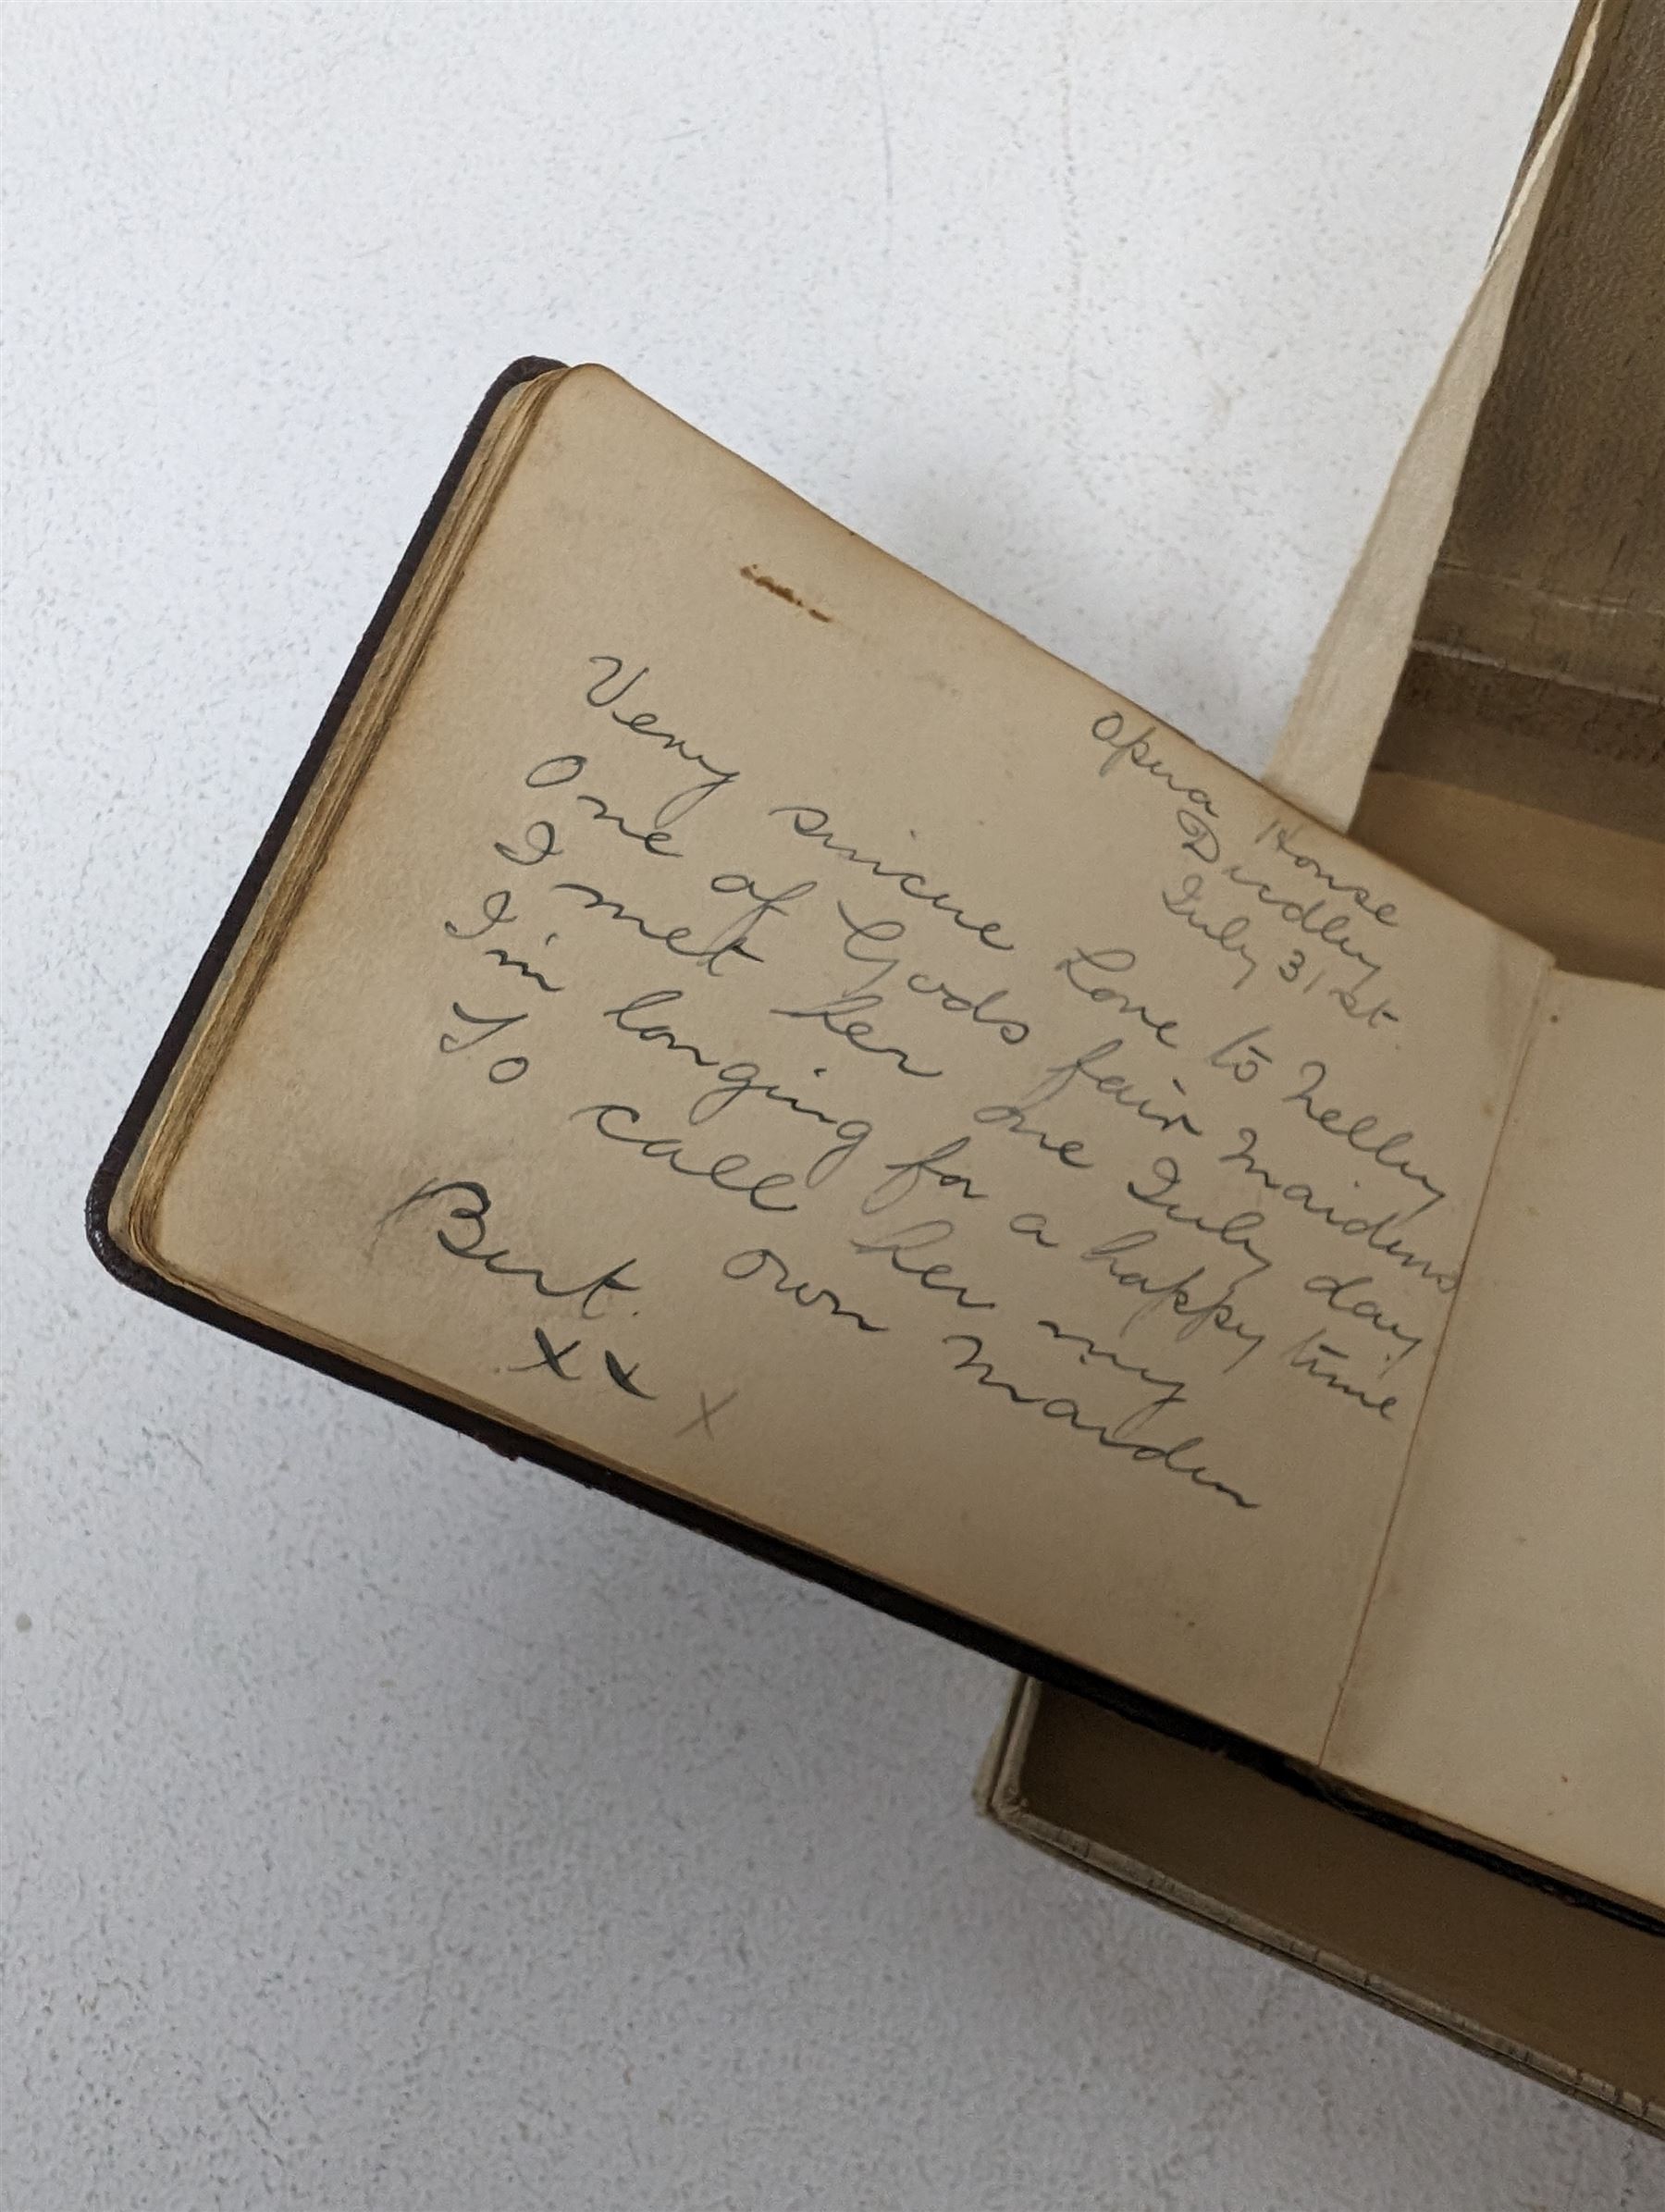 Opera House
Dudley
July 31st.
Very sincere Love to Nelly
One of Gods fair Maidens
I met her one July day
I'm longing for a happy time
To call her my
own maiden
Bert.
x x x